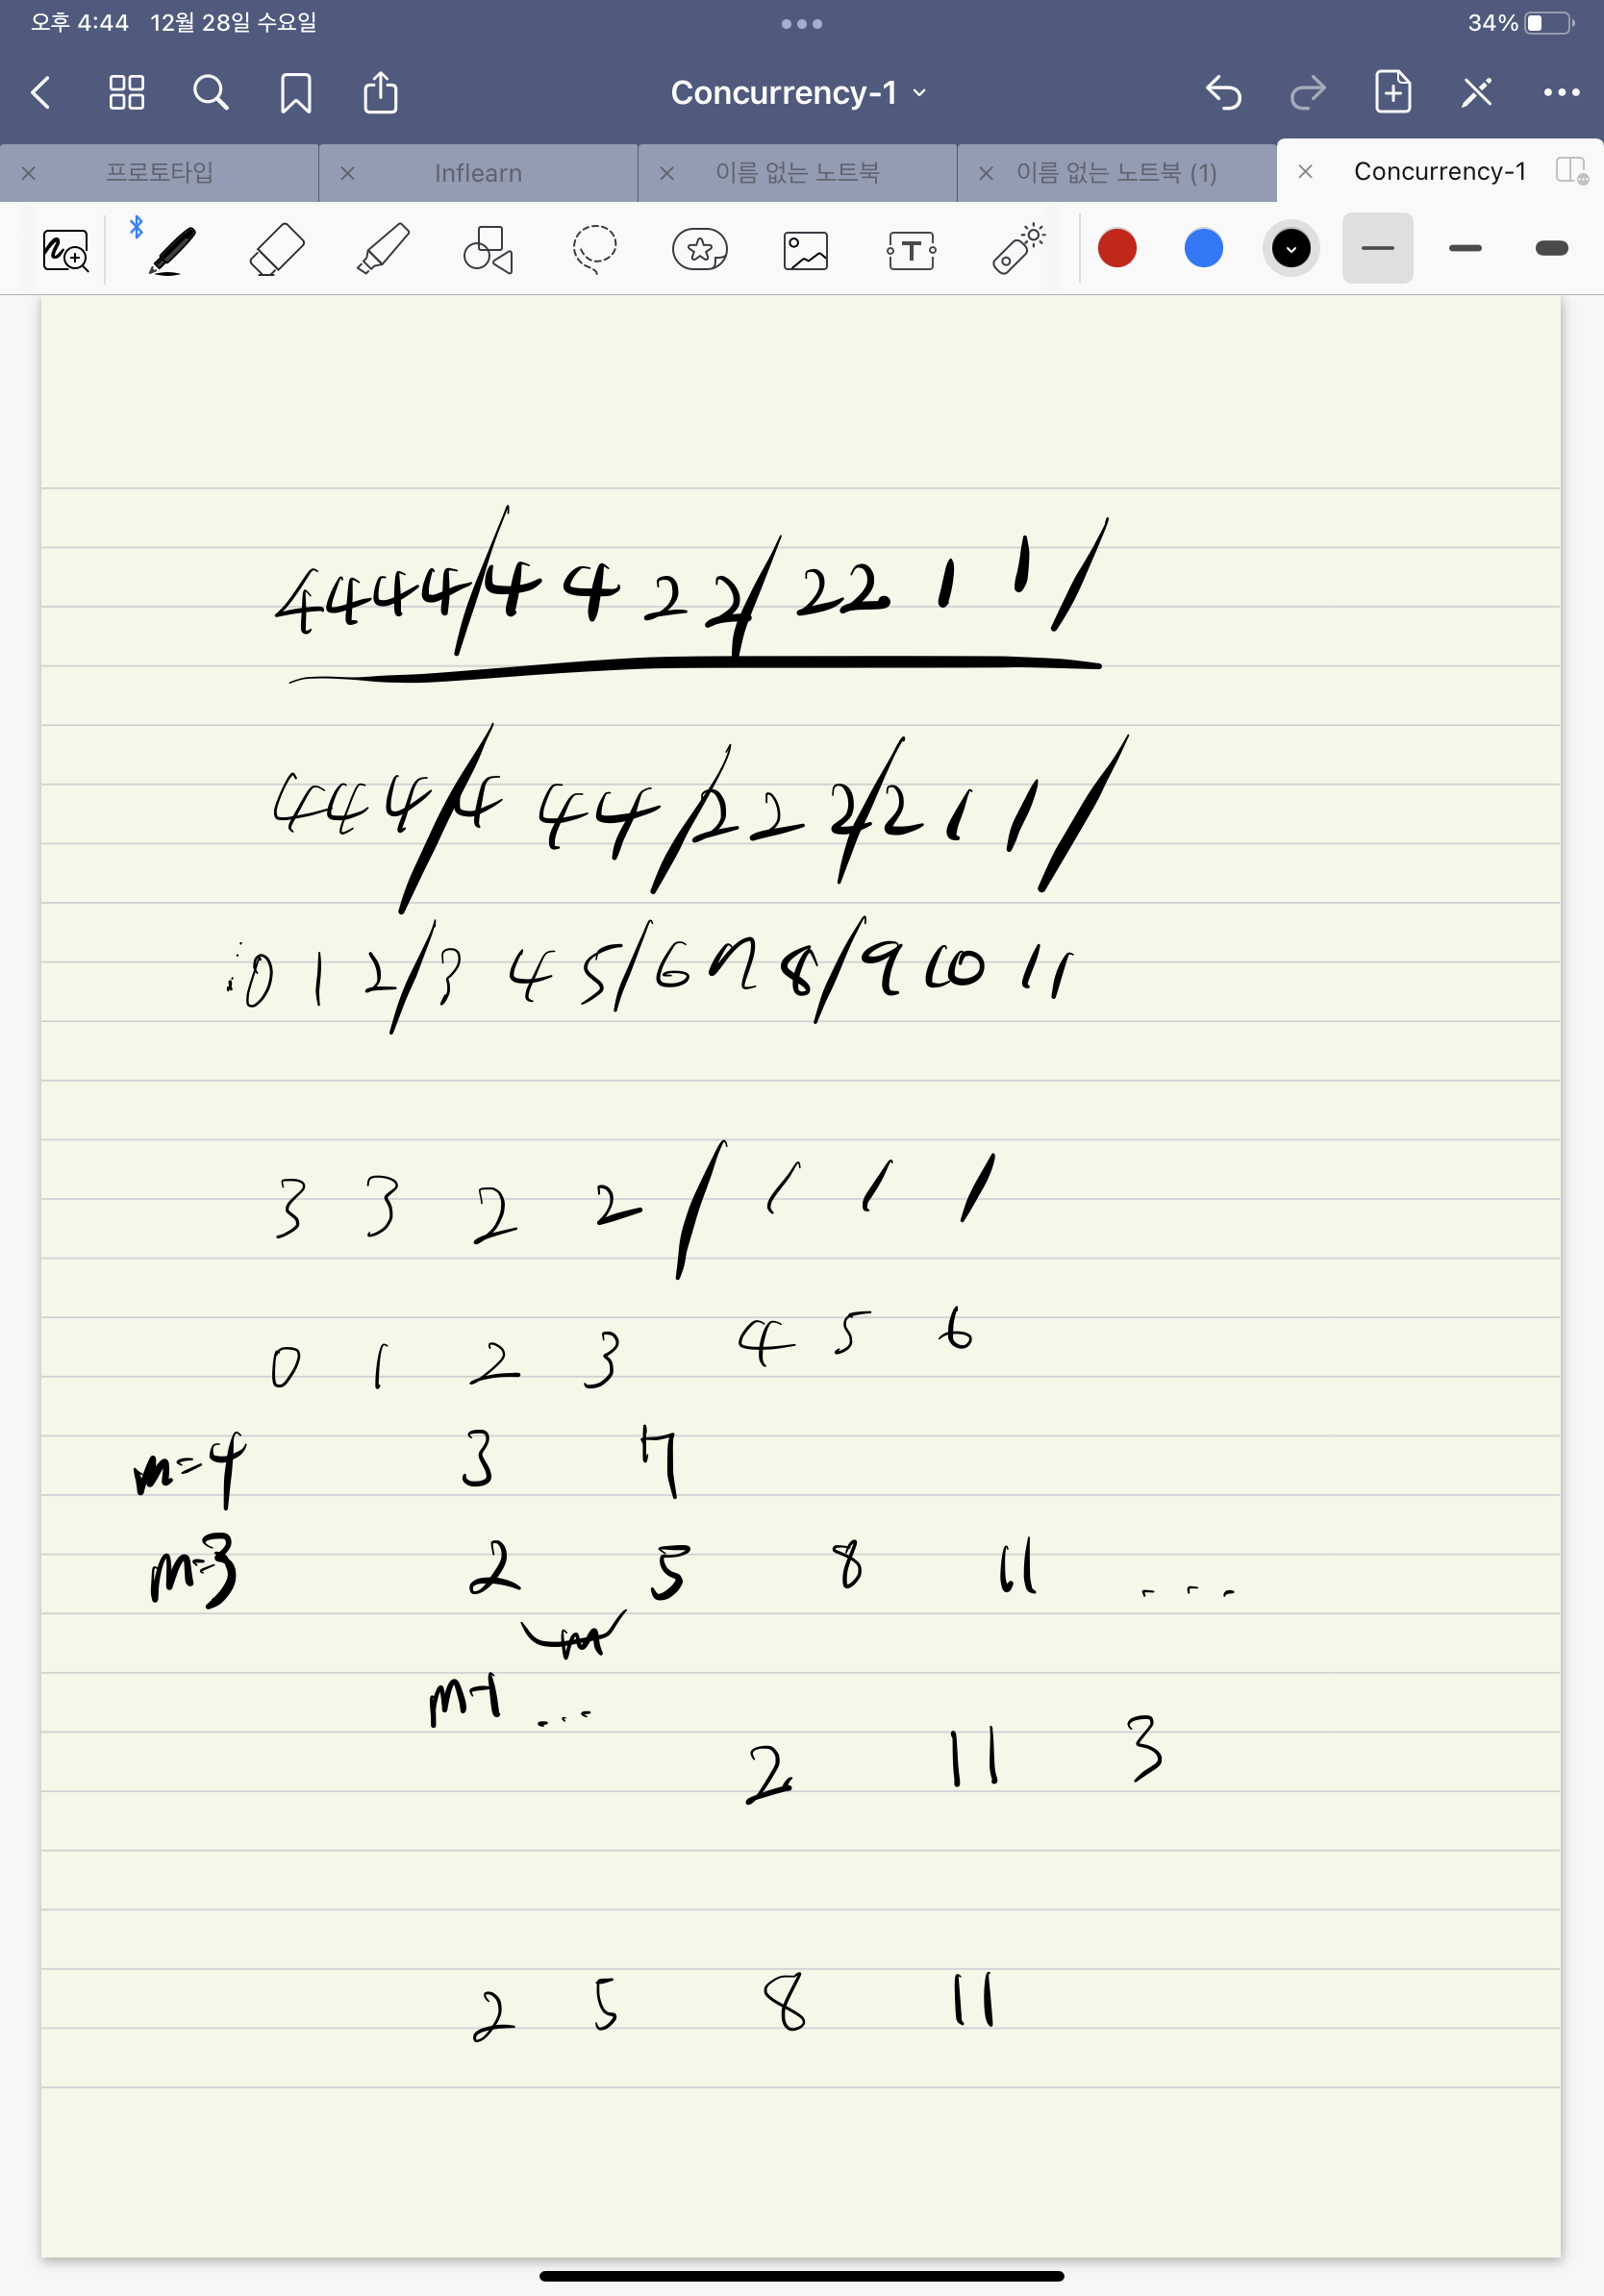 오후 4:44 12월 28일 수요일 34%
Concurrency-1
프로토타입 Inflearn 이름 없는 노트북 이름 없는 노트북 (1) Concurrency-1
T
4444/4422/2211/
444/444/222/211/
i: 0 1 2/3 4 5/6 7 8/9 10 11
3 3 2 2/1 1 1
0 1 2 3 4 5 6
m=4 3 7
m=3 2 5 8 11 ...
m
m-1 ...
2 11 3
2 5 8 11